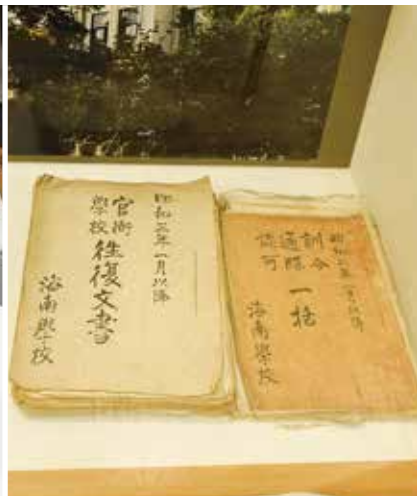 昭和三年一月以降
官衙
學校
往復文書
海南學校
昭和三年一月以降
訓令
通牒
認可
一括
海南學校